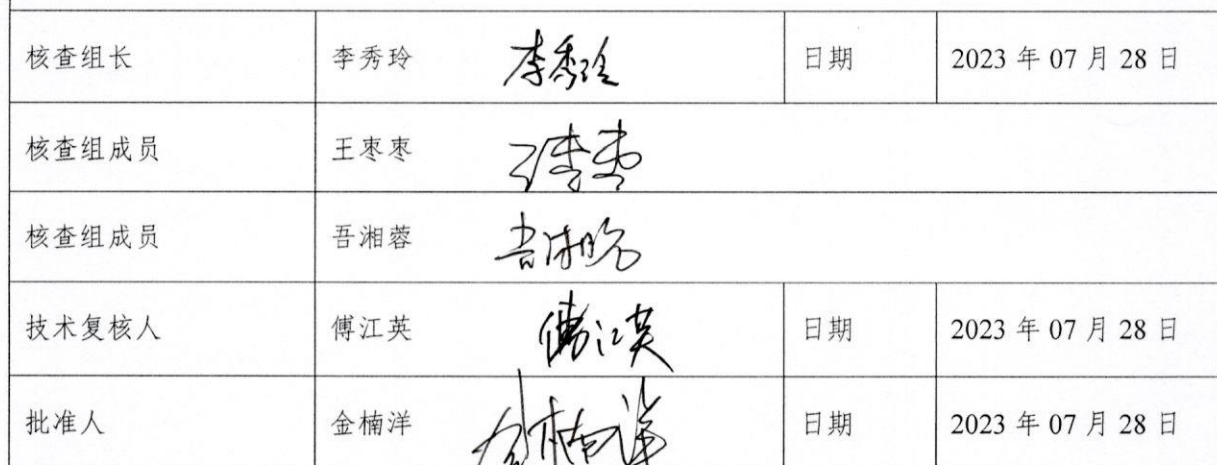 核查组长 李秀玲 李秀玲 日期 2023 年 07 月 28 日
核查组成员 王枣枣
核查组成员 吾湘蓉
技术复核人 傅江英 傅江英 日期 2023 年 07 月 28 日
批准人 金楠洋 金楠洋 日期 2023 年 07 月 28 日